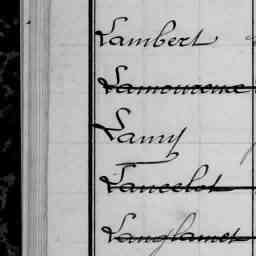 Lambert
Lamoureux
Lamy
Lancelot
Langlamet